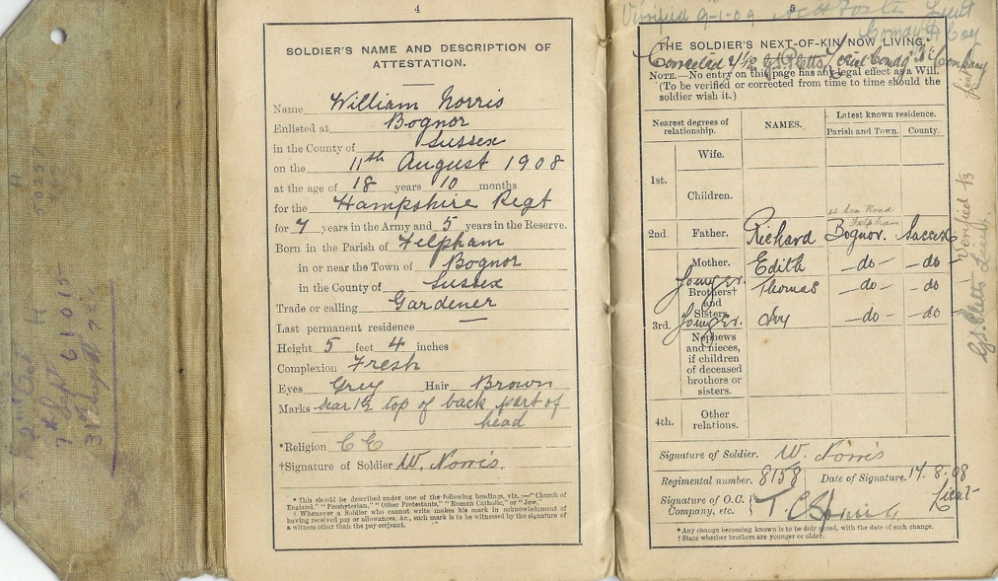 4
SOLDIER'S NAME AND DESCRIPTION OF
ATTESTATION.
Name William Norris
Enlisted at Bognor
in the County of Sussex
on the 11th August 1908
at the age of 18 years 10 months
for the Hampshire Regt
for 7 years in the Army and 5 years in the Reserve.
Born in the Parish of Felpham
in or near the Town of Bognor
in the County of Sussex
Trade or calling Gardener
Last permanent residence —
Height 5 feet 4 inches
Complexion Fresh
Eyes Grey Hair Brown
Marks top of back part of
head
*Religion C E
†Signature of Soldier W. Norris.
* This should be described under one of the following headings, viz.:—"Church of
England," "Presbyterian," "Other Protestants," "Roman Catholic," or "Jew."
† Whenever a Soldier who cannot write makes his mark in acknowledgment of
having received pay or allowances, &c., such mark is to be witnessed by the signature of
a witness other than the pay serjeant.
5
Verified 9-1-09 Lieut
Comdg Coy
THE SOLDIER'S NEXT-OF-KIN NOW LIVING.
Corrected Comdg Company
NOTE.—No entry on this page has any legal effect as a Will.
(To be verified or corrected from time to time should the
soldier wish it.)
Nearest degrees of
relationship.
NAMES.
Latest known residence.
Parish and Town. County.
1st. Wife.
Children.
Road
Felpham
2nd. Father. Richard Bognor. Sussex
Mother. Edith —do— —do—
Younger. Brothers† Thomas —do— —do—
and
Sisters.
3rd. Younger. Ivy —do— —do—
Nephews
and nieces,
if children
of deceased
brothers or
sisters.
4th. Other
relations.
Signature of Soldier. W. Norris
Regimental number. 8158 Date of Signature. 17.8.08
Signature of O.C. Lieut
Company, etc.
* Any change becoming known is to be duly noted, with the date of such change.
† State whether brothers are younger or older.
Verified
Lieut.